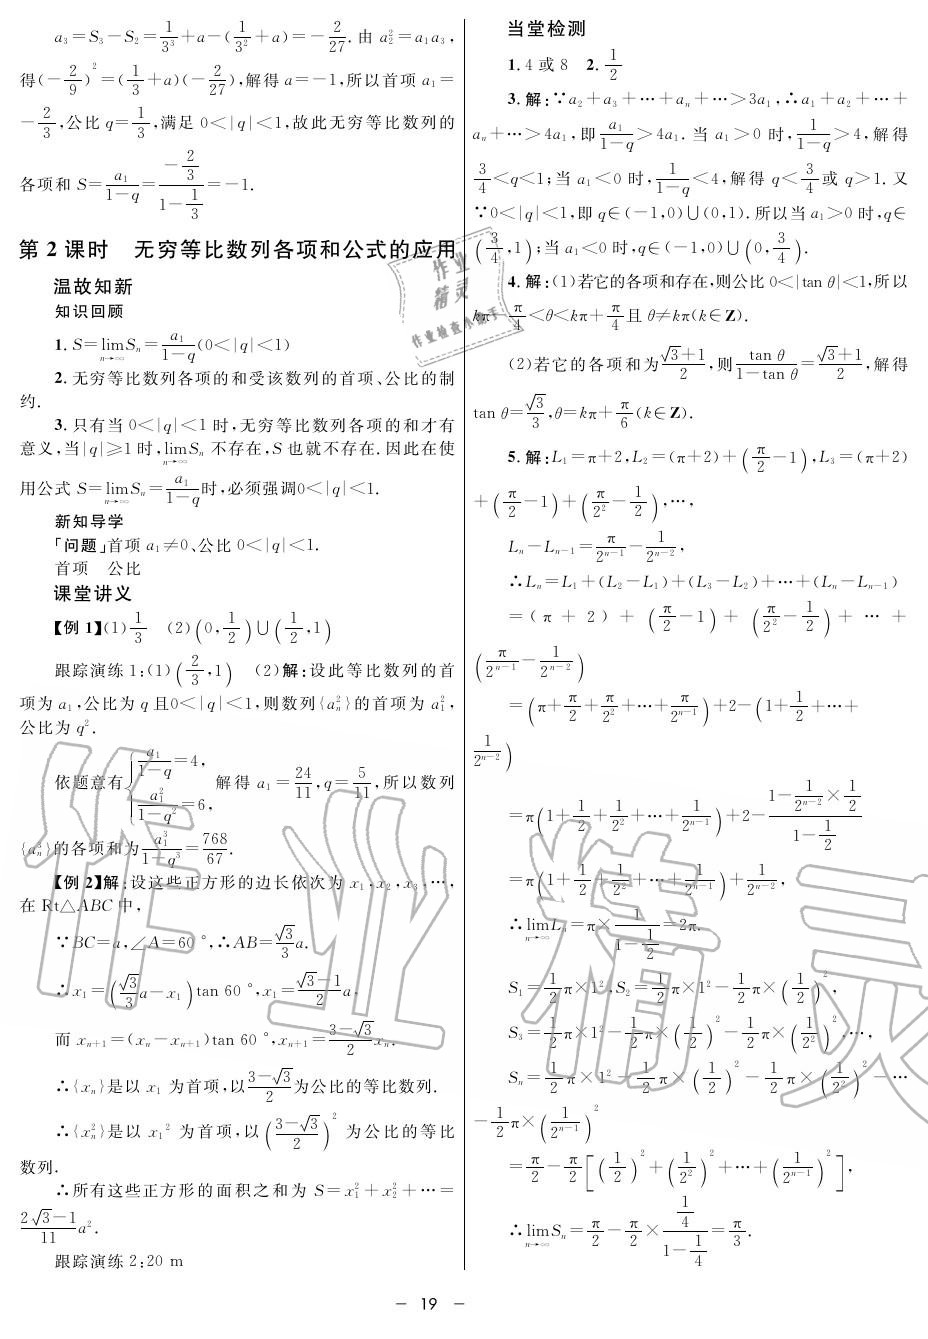 a₃=S₃-S₂=1/3³+a-(1/3²+a)=-2/27.由 a₂²=a₁a₃,
得(-2/9)²=(1/3+a)(-2/27),解得 a=-1,所以首项 a₁=
-2/3,公比 q=1/3,满足 0<|q|<1,故此无穷等比数列的
各项和 S=a₁/(1-q)=(-2/3)/(1-1/3)=-1.
第 2 课时 无穷等比数列各项和公式的应用
温故知新
知识回顾
1. S=lim(n→∞)Sₙ=a₁/(1-q)(0<|q|<1)
2. 无穷等比数列各项的和受该数列的首项、公比的制
约.
3. 只有当 0<|q|<1 时,无穷等比数列各项的和才有
意义,当|q|≥1 时,lim(n→∞)Sₙ 不存在,S 也就不存在.因此在使
用公式 S=lim(n→∞)Sₙ=a₁/(1-q)时,必须强调0<|q|<1.
新知导学
「问题」首项 a₁≠0、公比 0<|q|<1.
首项 公比
课堂讲义
【例 1】(1)1/3 (2)(0,1/2)∪(1/2,1)
跟踪演练 1:(1)(2/3,1) (2)解:设此等比数列的首
项为 a₁,公比为 q 且0<|q|<1,则数列{aₙ²}的首项为 a₁²,
公比为 q².
依题意有{a₁/(1-q)=4, a₁²/(1-q²)=6, 解得 a₁=24/11,q=5/11,所以数列
{aₙ³}的各项和为a₁³/(1-q³)=768/67.
【例 2】解:设这些正方形的边长依次为 x₁,x₂,x₃,…,
在 Rt△ABC 中,
∵BC=a,∠A=60 °,∴AB=√3/3 a.
∴x₁=(√3/3 a-x₁)tan 60 °,x₁=(√3-1)/2 a,
而 xₙ₊₁=(xₙ-xₙ₊₁)tan 60 °,xₙ₊₁=(3-√3)/2 xₙ.
∴{xₙ}是以 x₁ 为首项,以(3-√3)/2为公比的等比数列.
∴{xₙ²}是以 x₁² 为首项,以((3-√3)/2)² 为公比的等比
数列.
∴所有这些正方形的面积之和为 S=x₁²+x₂²+…=
(2√3-1)/11 a².
跟踪演练 2:20 m
当堂检测
1. 4 或 8 2. 1/2
3. 解:∵a₂+a₃+…+aₙ+…>3a₁,∴a₁+a₂+…+
aₙ+…>4a₁,即a₁/(1-q)>4a₁.当 a₁>0 时,1/(1-q)>4,解得
3/4<q<1;当 a₁<0 时,1/(1-q)<4,解得 q<3/4或 q>1.又
∵0<|q|<1,即 q∈(-1,0)∪(0,1).所以当 a₁>0 时,q∈
(3/4,1);当 a₁<0 时,q∈(-1,0)∪(0,3/4).
4. 解:(1)若它的各项和存在,则公比 0<|tan θ|<1,所以
kπ-π/4<θ<kπ+π/4且 θ≠kπ(k∈Z).
(2)若它的各项和为(√3+1)/2,则tan θ/(1-tan θ)=(√3+1)/2,解得
tan θ=√3/3,θ=kπ+π/6(k∈Z).
5. 解:L₁=π+2,L₂=(π+2)+(π/2-1),L₃=(π+2)
+(π/2-1)+(π/2²-1/2),…,
Lₙ-Lₙ₋₁=π/2ⁿ⁻¹-1/2ⁿ⁻²,
∴Lₙ=L₁+(L₂-L₁)+(L₃-L₂)+…+(Lₙ-Lₙ₋₁)
=(π+2)+(π/2-1)+(π/2²-1/2)+…+
(π/2ⁿ⁻¹-1/2ⁿ⁻²)
=(π+π/2+π/2²+…+π/2ⁿ⁻¹)+2-(1+1/2+…+
1/2ⁿ⁻²)
=π(1+1/2+1/2²+…+1/2ⁿ⁻¹)+2-(1-1/2ⁿ⁻²×1/2)/(1-1/2)
=π(1+1/2+1/2²+…+1/2ⁿ⁻¹)+1/2ⁿ⁻²,
∴lim(n→∞)Lₙ=π×1/(1-1/2)=2π.
S₁=1/2π×1²,S₂=1/2π×1²-1/2π×(1/2)²,
S₃=1/2π×1²-1/2π×(1/2)²-1/2π×(1/2²)²,…,
Sₙ=1/2π×1²-1/2π×(1/2)²-1/2π×(1/2²)²-…
-1/2π×(1/2ⁿ⁻¹)²
=π/2-π/2[(1/2)²+(1/2²)²+…+(1/2ⁿ⁻¹)²],
∴lim(n→∞)Sₙ=π/2-π/2×(1/4)/(1-1/4)=π/3.
- 19 -
作业精灵